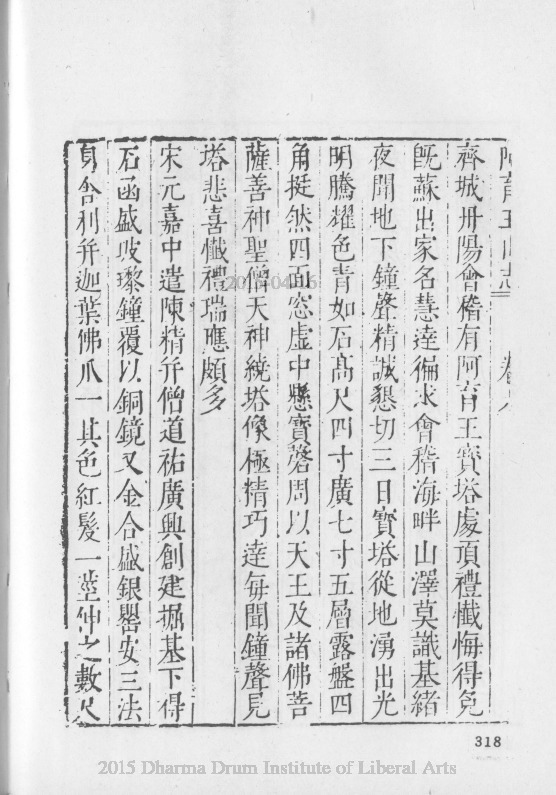 阿育王山志 卷
齊城丹陽會稽有阿育王寶塔處頂禮懺悔得免
旣蘇出家名慧達徧求會稽海畔山澤莫識基緒
夜聞地下鐘聲精誠懇切三日寶塔從地湧出光
明騰耀色青如石高尺四寸廣七寸五層露盤四
角挺然四面窓虛中懸寶磬周以天王及諸佛菩
薩善神聖僧天神繞塔像極精巧達每聞鐘聲見
塔悲喜懺禮瑞應頗多
宋元嘉中遣陳精并僧道祐廣興創建掘基下得
石函盛玻瓈鐘覆以銅鏡又金合盛銀罌安三法
身舍利并迦葉佛爪一其色紅髮一莖伸之數尺
318
2015 Dharma Drum Institute of Liberal Arts